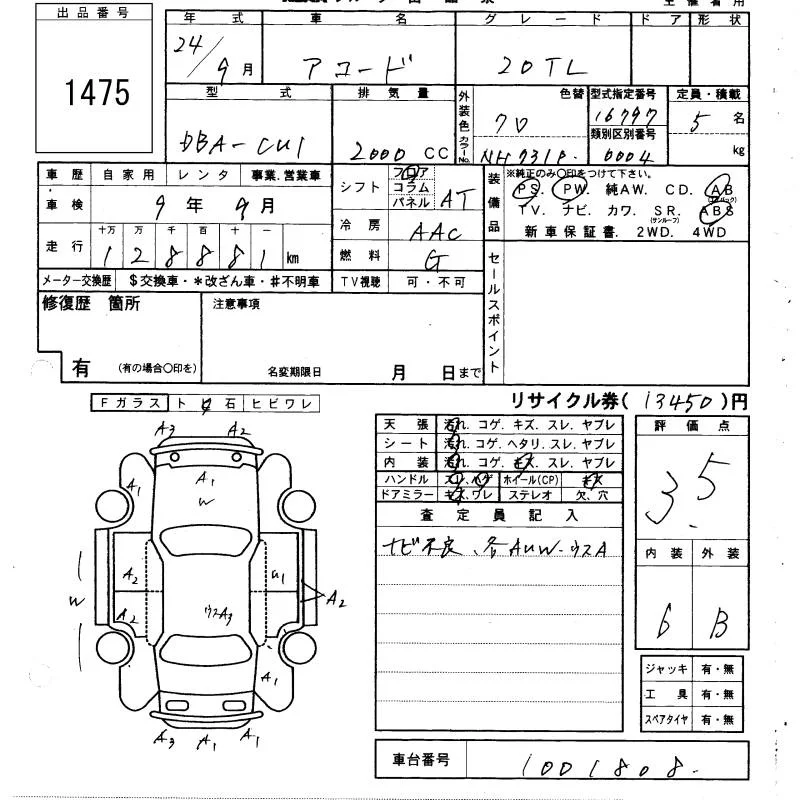 出品番号
1475
年 式 車 名 グ レ ー ド ド ア 形 状
24/9月 アコード 20TL
型 式 排 気 量 外装色 色替 型式指定番号 定員・積載
DBA-CU1 2000 CC クロ カラーNo. NH731P. 16797 5 名
類別区別番号 0004 kg
車 歴 自 家 用 レ ン タ 事業.営業車
車 検 9 年 9 月
走 行 十万 万 千 百 十 一
1 2 8 8 8 1 km
メーター交換歴 $交換車・*改ざん車・#不明車
シフト フロア コラム パネル AT
冷 房 AAC
燃 料 G
TV視聴 可・不可
装備品 ※純正のみ〇印をつけて下さい。
PS. PW. 純AW. CD. AB (エアバック)
TV. ナビ. カワ. SR. (サンルーフ) ABS
新車保証書. 2WD. 4WD
セールスポイント
修復歴 箇所 注意事項
有 (有の場合〇印を) 名変期限日 月 日まで
リサイクル券( 13450 )円
Fガラス ト 石 ヒビワレ
A3 A2
A1
W
A1
A2 U1
W A2 A2
ウスA3
A1
A3 A1 A1
天 張 汚れ. コゲ. キズ. スレ. ヤブレ
シート 汚れ. コゲ. ヘタリ. スレ. ヤブレ
内 装 汚れ. コゲ. キズ. スレ. ヤブレ
ハンドル スレ. ハゲ ホイール(CP) キズ
ドアミラー キズ.ワレ ステレオ 欠、穴
査 定 員 記 入
ナビ不良、各AUW・ウスA
評 価 点
3.5
内 装 外 装
6 B
ジャッキ 有・無
工 具 有・無
スペアタイヤ 有・無
車台番号 1001808.